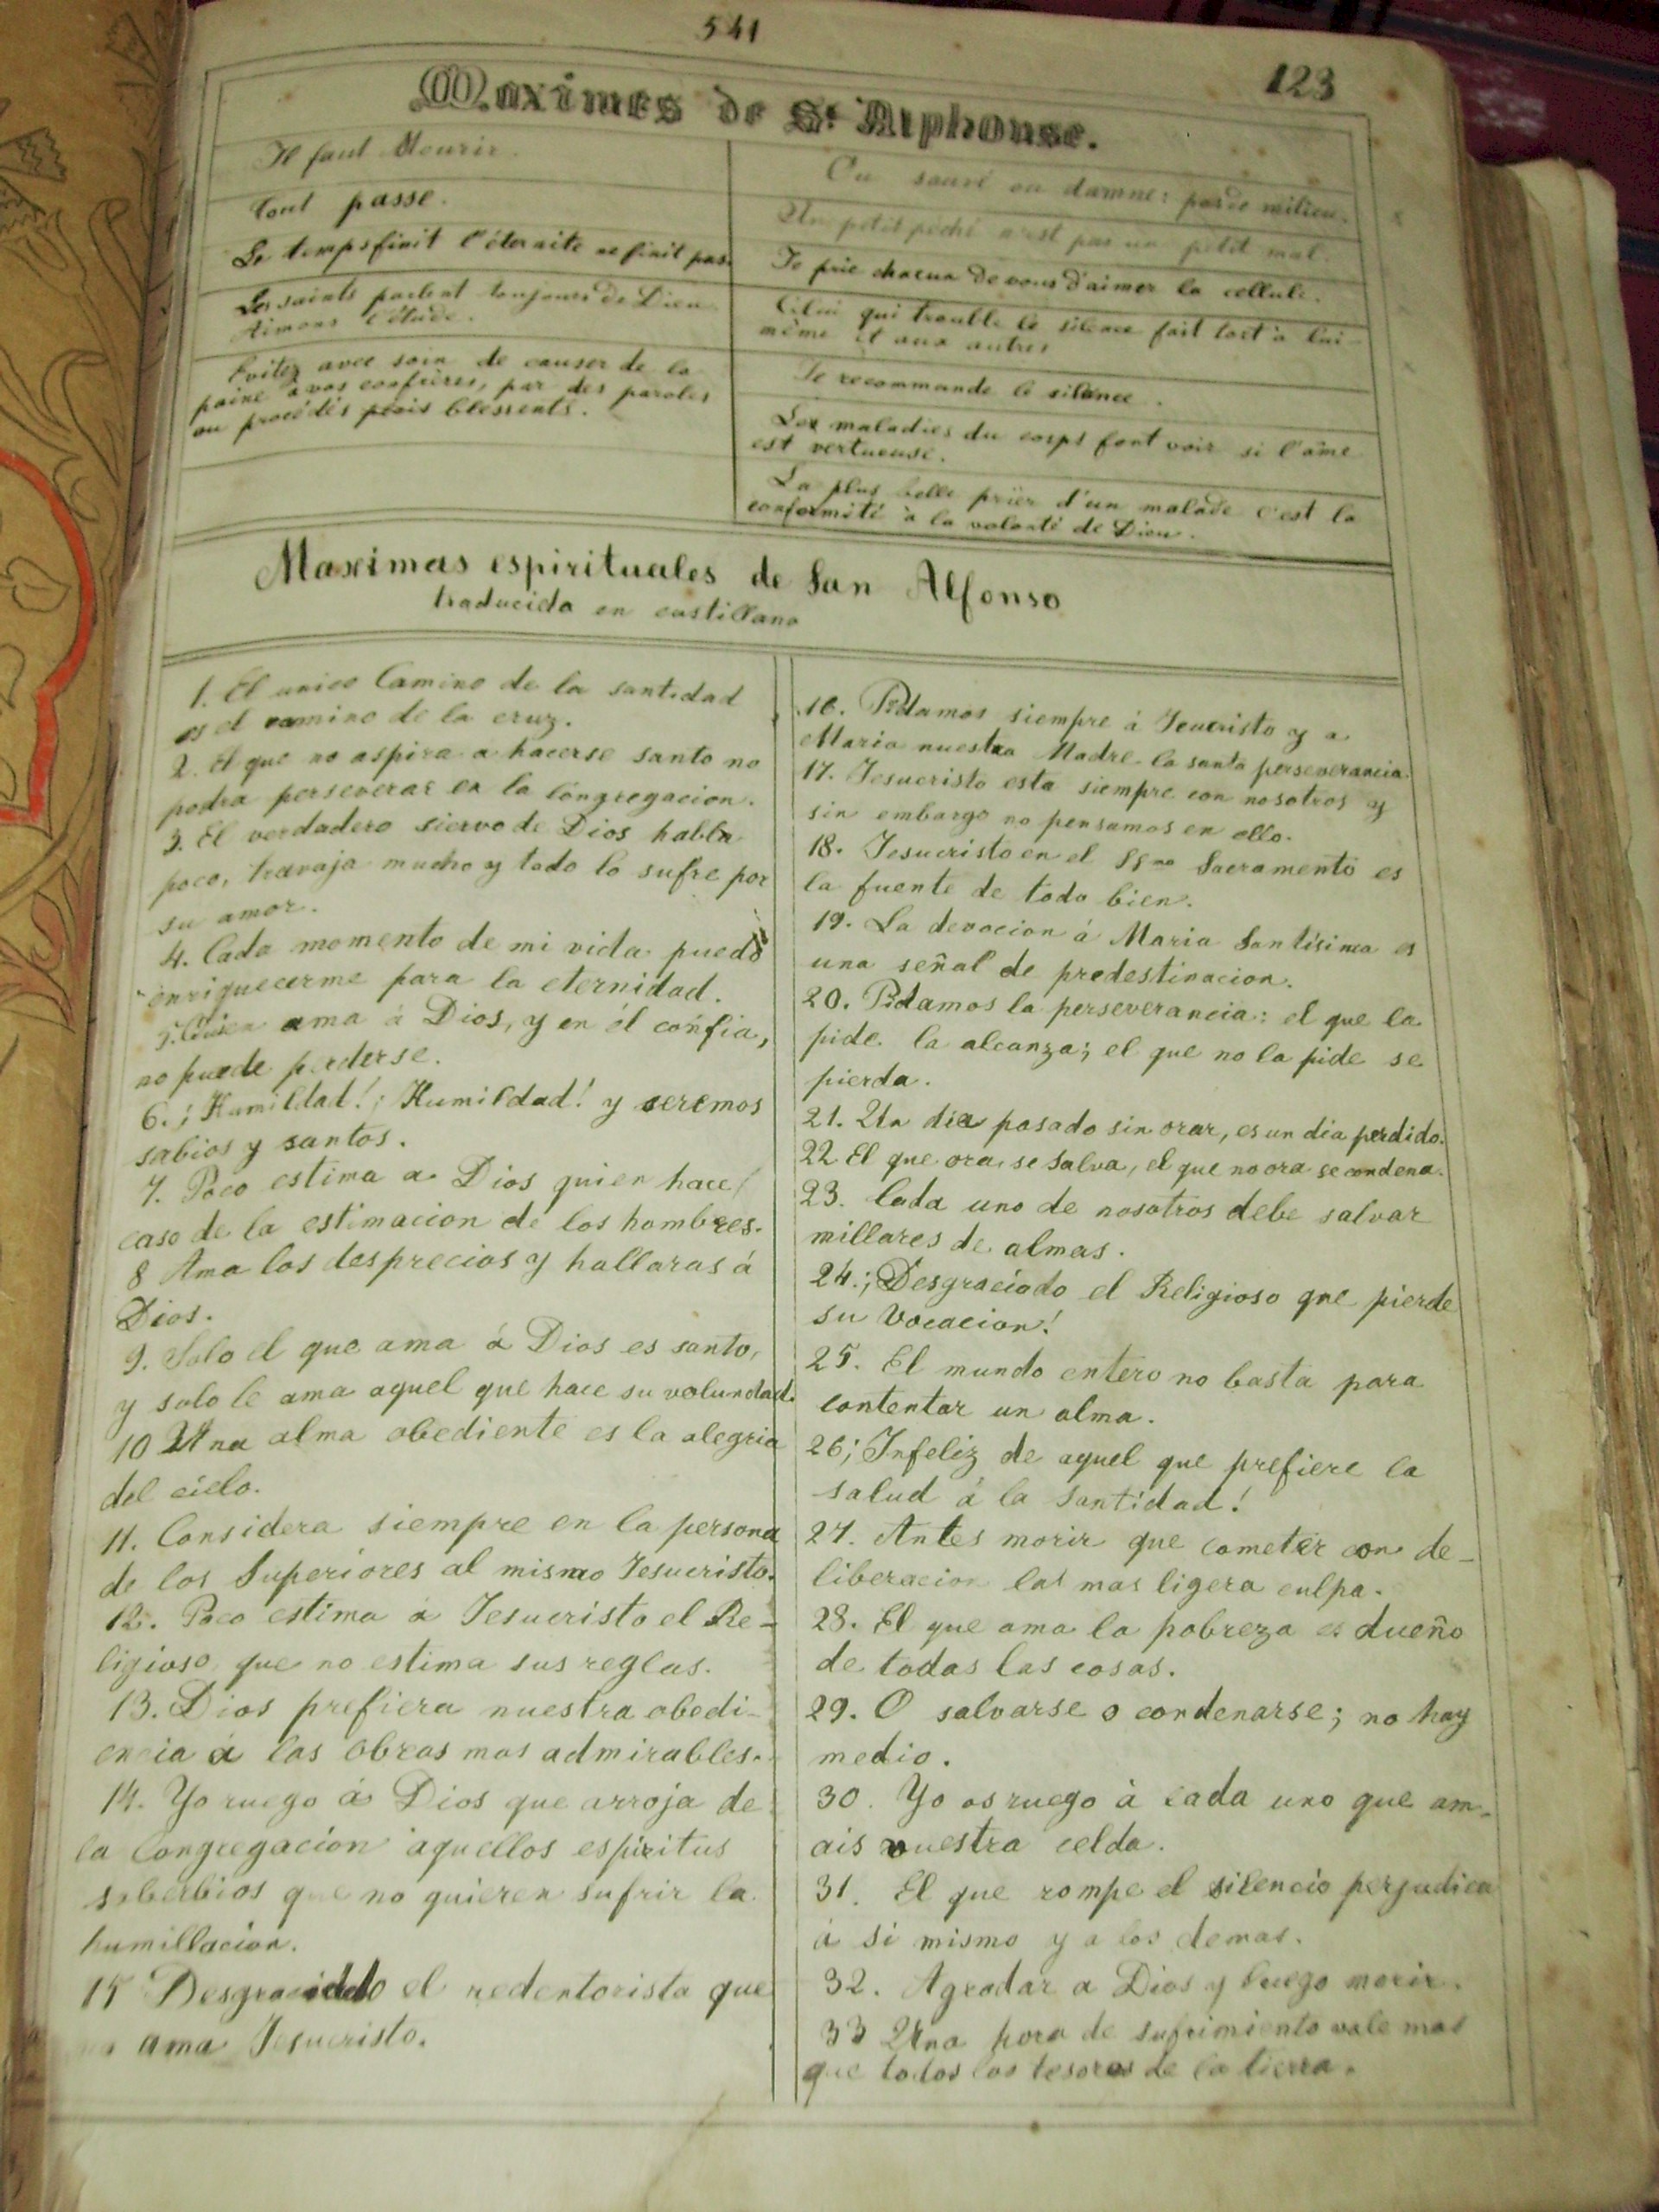 541
123
Maximes de St Alphonse.
Il faut Mourir.
Tout passe.
Le temps finit l'éternite ne finit pas.
Les saints parlent toujours de Dieu
Aimons l'étude.
Evitez avec soin de causer de la
paine à vos confrères, par des paroles
ou procédés blessents.
Ou sauvé ou damné: pas de milieu.
Un petit péché n'est pas un petit mal.
Je prie chacun de vous d'aimer la cellule.
Celui qui trouble le silence fait tort à lui-
même et aux autres
Je recommande le silence.
Les maladies du corps font voir si l'âme
est vertueuse.
La plus belle prïer d'un malade c'est la
conformité à la volonté de Dieu.
Maximas espirituales de San Alfonso
traducida en castillano
1. El unico Camino de la santidad
es el camino de la cruz.
2. El que no aspira a hacerse santo no
podra perseverar en la Congregacion.
3. El verdadero siervo de Dios habla
poco, travaja mucho y todo lo sufre por
su amor.
4. Cada momento de mi vida puedo
enriquecerme para la eternidad.
5. Quien ama á Dios, y en él confia,
no puede perderse.
6. ¡Humildad! ¡Humildad! y seremos
sabios y santos.
7. Poco estima a Dios quien hace
caso de la estimacion de los hombres.
8 Ama los desprecios y hallaras á
Dios.
9. Solo el que ama á Dios es santo,
y solo le ama aquel que hace su volundad.
10 Una alma obediente es la alegria
del cielo.
11. Considera siempre en la persona
de los Superiores al mismo Jesucristo.
12. Poco estima á Jesucristo el Re-
ligioso que no estima sus reglas.
13. Dios prefiera nuestra obedi-
encia á las obras mas admirables.
14. Yo ruego á Dios que arroja de
la Congregacion aquellos espiritus
soberbios que no quieren sufrir la
humillacion.
15 Desgraciado el redentorista que
no ama Jesucristo.
16. Pidamos siempre á Jeucristo y a
Maria nuestra Madre la santa perseverancia.
17. Jesucristo esta siempre con nosotros y
sin embargo no pensamos en ello.
18. Jesucristo en el SSmo Sacramento es
la fuente de todo bien.
19. La devocion á Maria Santisima es
una señal de predestinacion.
20. Pidamos la perseverancia: el que la
pide la alcanza; el que no la pide se
pierda.
21. Un dia pasado sin orar, es un dia perdido.
22 El que ora se salva, el que no ora se condena.
23. Cada uno de nosotros debe salvar
millares de almas.
24. ¡Desgraciado el Religioso que pierde
su Vocacion!
25. El mundo entero no basta para
contentar un alma.
26 ¡Infeliz de aquel que prefiere la
salud á la santidad!
27. Antes morir que cometer con de-
liberacion las mas ligera culpa.
28. El que ama la pobreza es dueño
de todas las cosas.
29. O salvarse o condenarse; no hay
medio.
30. Yo os ruego à cada uno que am-
ais vuestra celda.
31. El que rompe el silencio perjudica
á si mismo y a los demas.
32. Agradar a Dios y luego morir.
33 Una hora de sufrimiento vale mas
que todos los tesoros de la tierra.